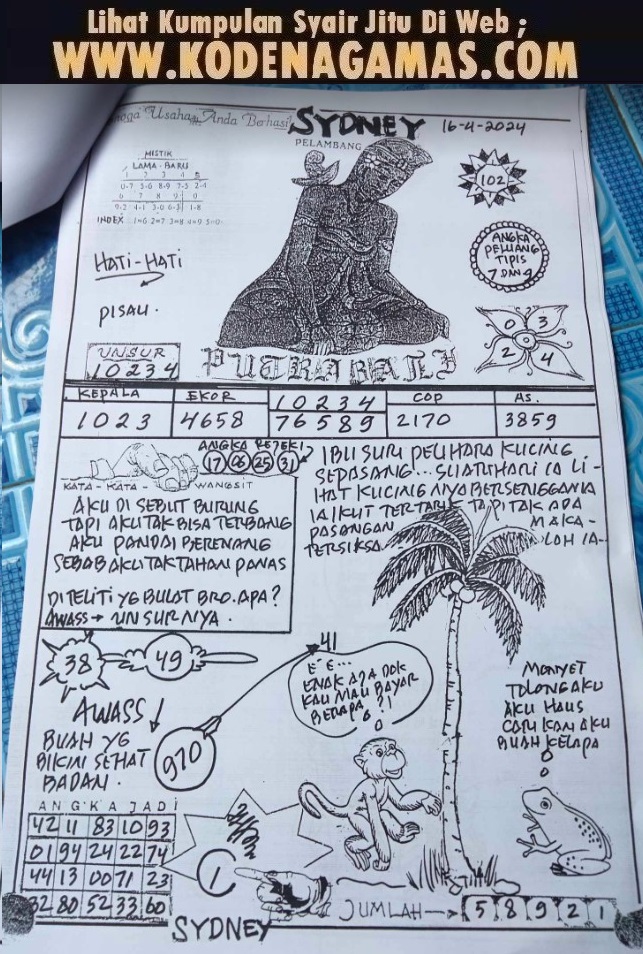 Lihat Kumpulan Syair Jitu Di Web ;
WWW.KODENAGAMAS.COM
Usaha Anda Berhasil
SYDNEY 16-4-2024
PELAMBANG
MISTIK
LAMA - BARU
1 2 3 4 5
0-7 5-6 8-9 7-5 2-4
6 7 8 9 0
9-2 4-1 3-0 6-3 1-8
INDEX 1=6 2=7 3=8 4=9 5=0
102
HATI-HATI
PISAU.
ANGKA
PELUANG
TIPIS
7 DAN 4
0 3
2 4
UNSUR
10234
PUTRA BALI
KEPALA EKOR 10234 COP AS.
1023 4658 76589 2170 3859
ANGKA REJEKI
17 06 25 31
KATA - KATA - WANGSIT
AKU DI SEBUT BURUNG
TAPI AKU TAK BISA TERBANG
AKU PANDAI BERENANG
SEBAB AKU TAK TAHAN PANAS
DITELITI YG BULAT BRO. APA?
AWASS → UNSURNYA.
IBU SURI PELIHARA KUCING
SEPASANG... SUATU HARI IA LI-
HAT KUCINGNYA BERSENGGAMA
IA IKUT TERTARIK TAPI TAK ADA
PASANGAN MAKA-
TERSIKSA LOH IA-
38 49
41
E E...
ENAK AJA DOK
KAU MAU BAYAR
BERAPA ?!
MONYET
TOLONG AKU
AKU HAUS
CARI KAN AKU
BUAH KELAPA
AWASS!
BUAH YG
BIKIN SEHAT
BADAN.
970
ANGKA JADI
42 11 83 10 93
01 94 24 22 74
44 13 00 71 23
32 80 52 33 60
C 1
JUMLAH → 5 8 9 2 1
SYDNEY